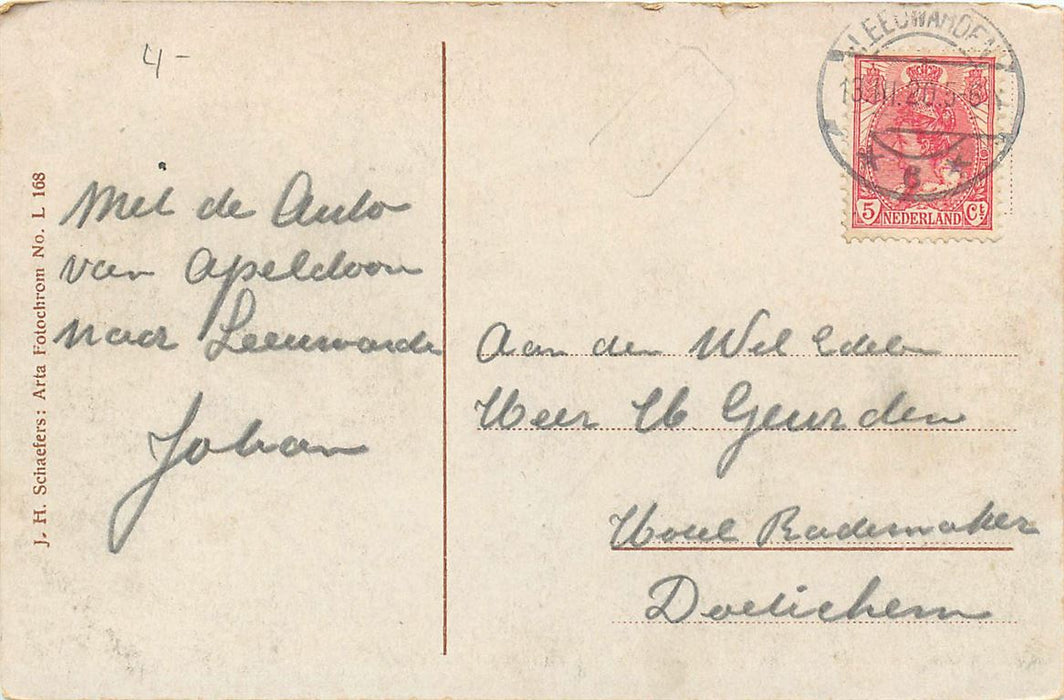 4-
LEEUWARDEN
5-6
6
5 NEDERLAND Ct
J. H. Schaefers: Arta Fotochrom No. L 168
Met de Auto
van Apeldoorn
naar Leeuwarden
Johan
Aan den Wel Edelen
Heer H. Geurden
Hotel Rademaker
Doetichem